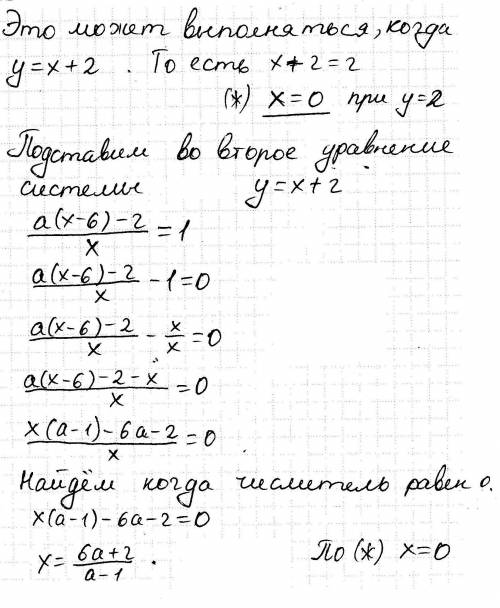 Это может выполняться, когда
y=x+2 . То есть x+2=2
(*) x=0 при y=2
Подставим во второе уравнение
системы y=x+2
a(x-6)-2/x=1
a(x-6)-2/x-1=0
a(x-6)-2/x-x/x=0
a(x-6)-2-x/x=0
x(a-1)-6a-2/x=0
Найдём когда числитель равен 0.
x(a-1)-6a-2=0
x=6a+2/a-1 . По (*) x=0